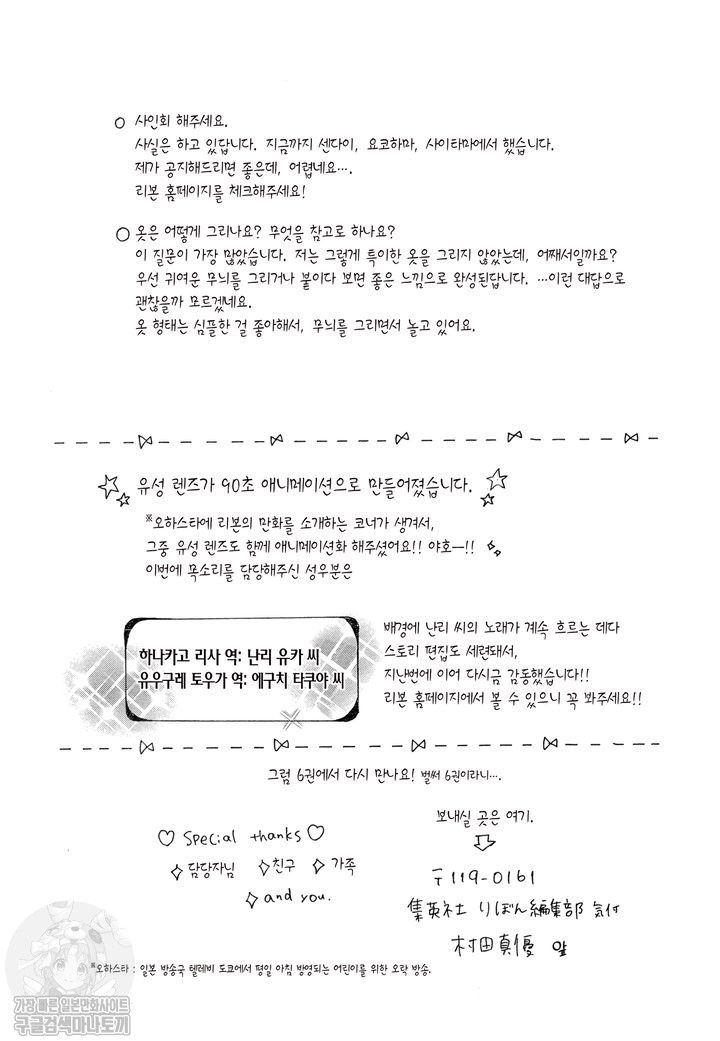 ○ 사인회 해주세요.
사실은 하고 있답니다. 지금까지 센다이, 요코하마, 사이타마에서 했습니다.
제가 공지해드리면 좋은데, 어렵네요….
리본 홈페이지를 체크해주세요!
○ 옷은 어떻게 그리나요? 무엇을 참고로 하나요?
이 질문이 가장 많았습니다. 저는 그렇게 특이한 옷을 그리지 않았는데, 어째서일까요?
우선 귀여운 무늬를 그리거나 붙이다 보면 좋은 느낌으로 완성된답니다. …이런 대답으로
괜찮을까 모르겠네요.
옷 형태는 심플한 걸 좋아해서, 무늬를 그리면서 놀고 있어요.
유성 렌즈가 90초 애니메이션으로 만들어졌습니다.
※오하스타에 리본의 만화를 소개하는 코너가 생겨서,
그중 유성 렌즈도 함께 애니메이션화 해주셨어요!! 야호—!!
이번에 목소리를 담당해주신 성우분은
하나카고 리사 역: 난리 유카 씨
유우구레 토우가 역: 에구치 타쿠야 씨
배경에 난리 씨의 노래가 계속 흐르는 데다
스토리 편집도 세련돼서,
지난번에 이어 다시금 감동했습니다!!
리본 홈페이지에서 볼 수 있으니 꼭 봐주세요!!
그럼 6권에서 다시 만나요! 벌써 6권이라니….
♡ Special thanks ♡
✧담당자님 ✧친구 ✧가족
✧and you.
보내실 곳은 여기.
〒119-0161
集英社 りぼん編集部 気付
村田真優 앞
※오하스타 : 일본 방송국 텔레비 도쿄에서 평일 아침 방영되는 어린이를 위한 오락 방송.
가장 빠른 일본만화사이트
구글검색마나토끼